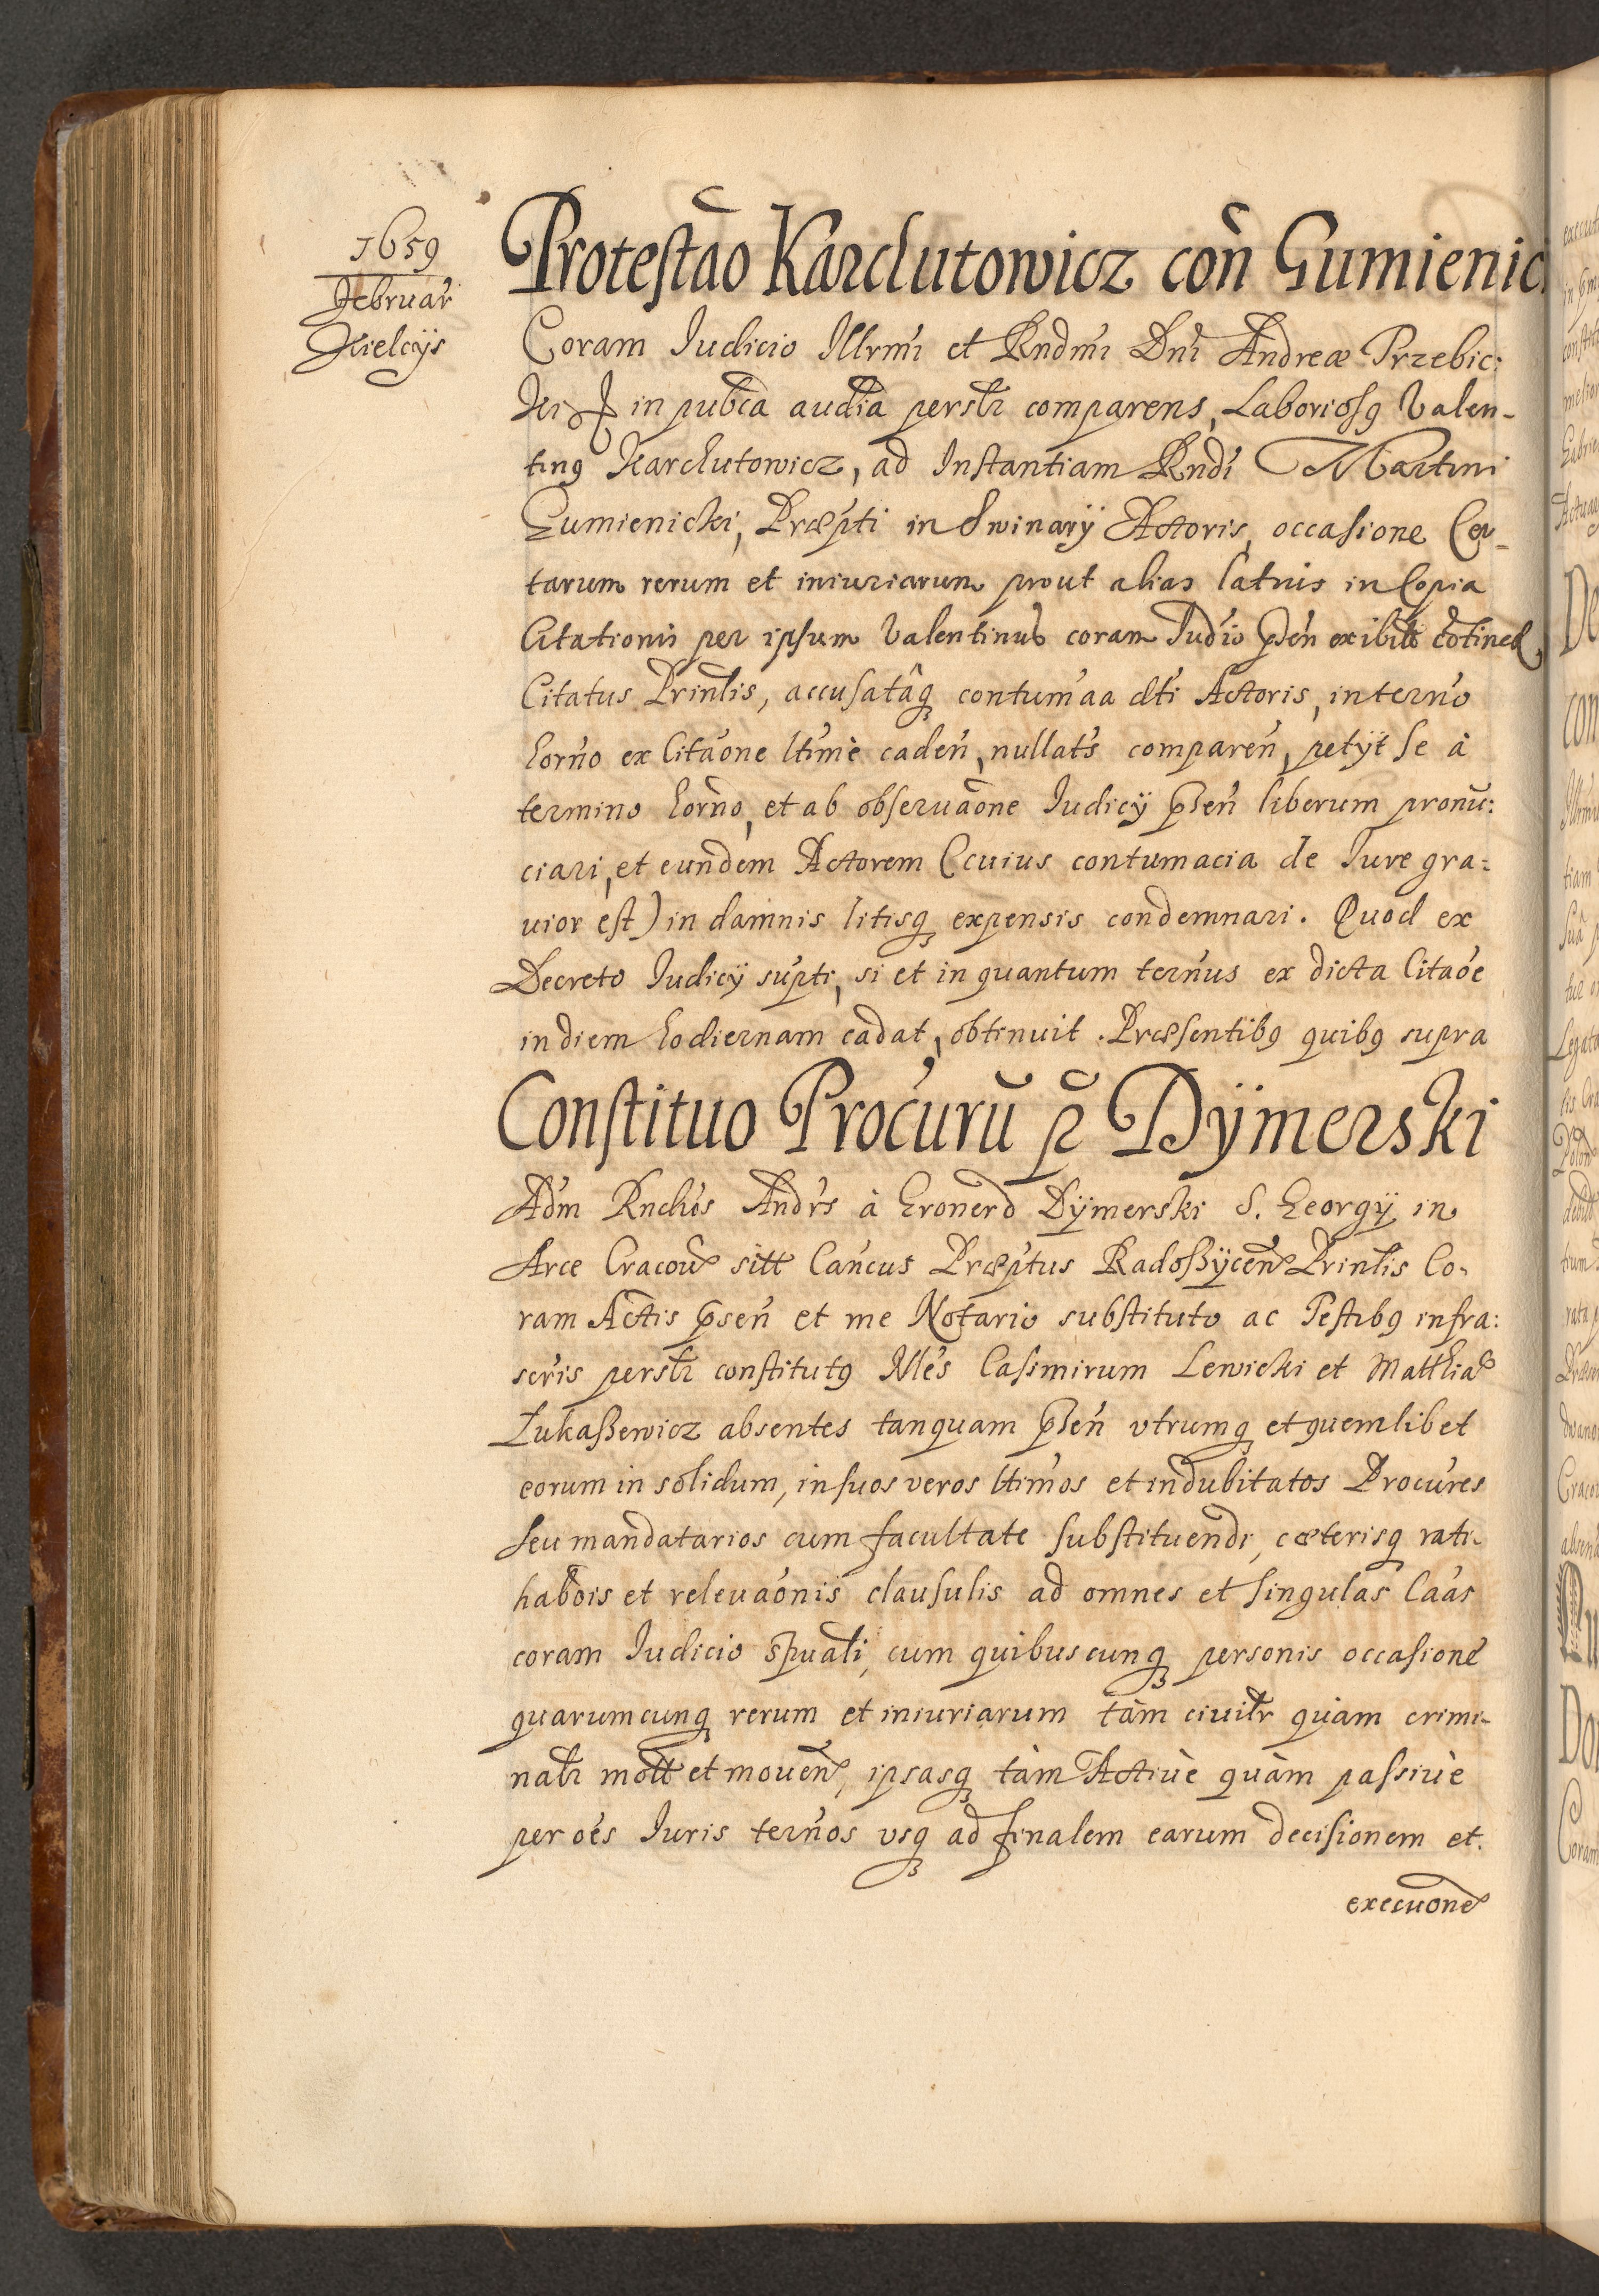 1659
Februar̃
Kielcÿs
Protestão Karchutowicz coñ Gumienic
Coram Iudicio Illrmi et Rndmi Dni Andreæ Trzebic:
ki in pubca audia perslr comparens, Laboriosq Valen-
tinq Karchutowicz, ad Instantiam Rndi Martini
Gumienicki, Præpti in Swinarÿ Actoris, occasione Cer-
tarum rerum et iniuriarum prout alias latius in Copia
Citationis per ipsum Valentinũ coram Iudio pñsen exibita cõtinet
Citatus Prinlis, accusatâq contumaa dti Actoris, in terno
horno ex Citãone ltime caden, nullats comparen, petÿt se à
termino horno, et ab obseruãone Iudicÿ pñsen liberum pronũ:
ciari, et eundem Actorem (cuius contumacia de Iure gra:
uior est) in damnis litisq expensis condemnari. Quod ex
Decreto Iudicÿ supti, si et in quantum ternus ex dicta Citãoe
in diem hodiernam cadat, obtinuit. Præsentibq quibq supra
Constituo Procurũ p Dÿmerski
Adm Rndus Andrs à Dÿmerski S. Georgÿ in
Arce Cracoũ sitt Cancus Præptus Radoßÿcen Prinlis Co-
ram Actis pñsen et me Notario substituto ac Testibq infra:
scris perslr constitutq Mles Casimirum Lewicki et Matthia
Łukaßewicz absentes tanquam pñsen vtrumq et quemlibet
eorum in solidum, in suos veros ltimos et indubitatos Procures
seu mandatarios cum facultate substituendi, cæterisq rati-
habõis et releuãonis clausulis ad omnes et singulas Caas
coram Iudicio spuali, cum quibuscunq personis occasione
quarumcunq rerum et iniuriarum tàm ciuilr quàm crimi-
nalr mott et mouen, ipsasq tàm Actiuè quàm passiuè
per oes Iuris ternos vsq ad finalem earum decisionem et
execuone